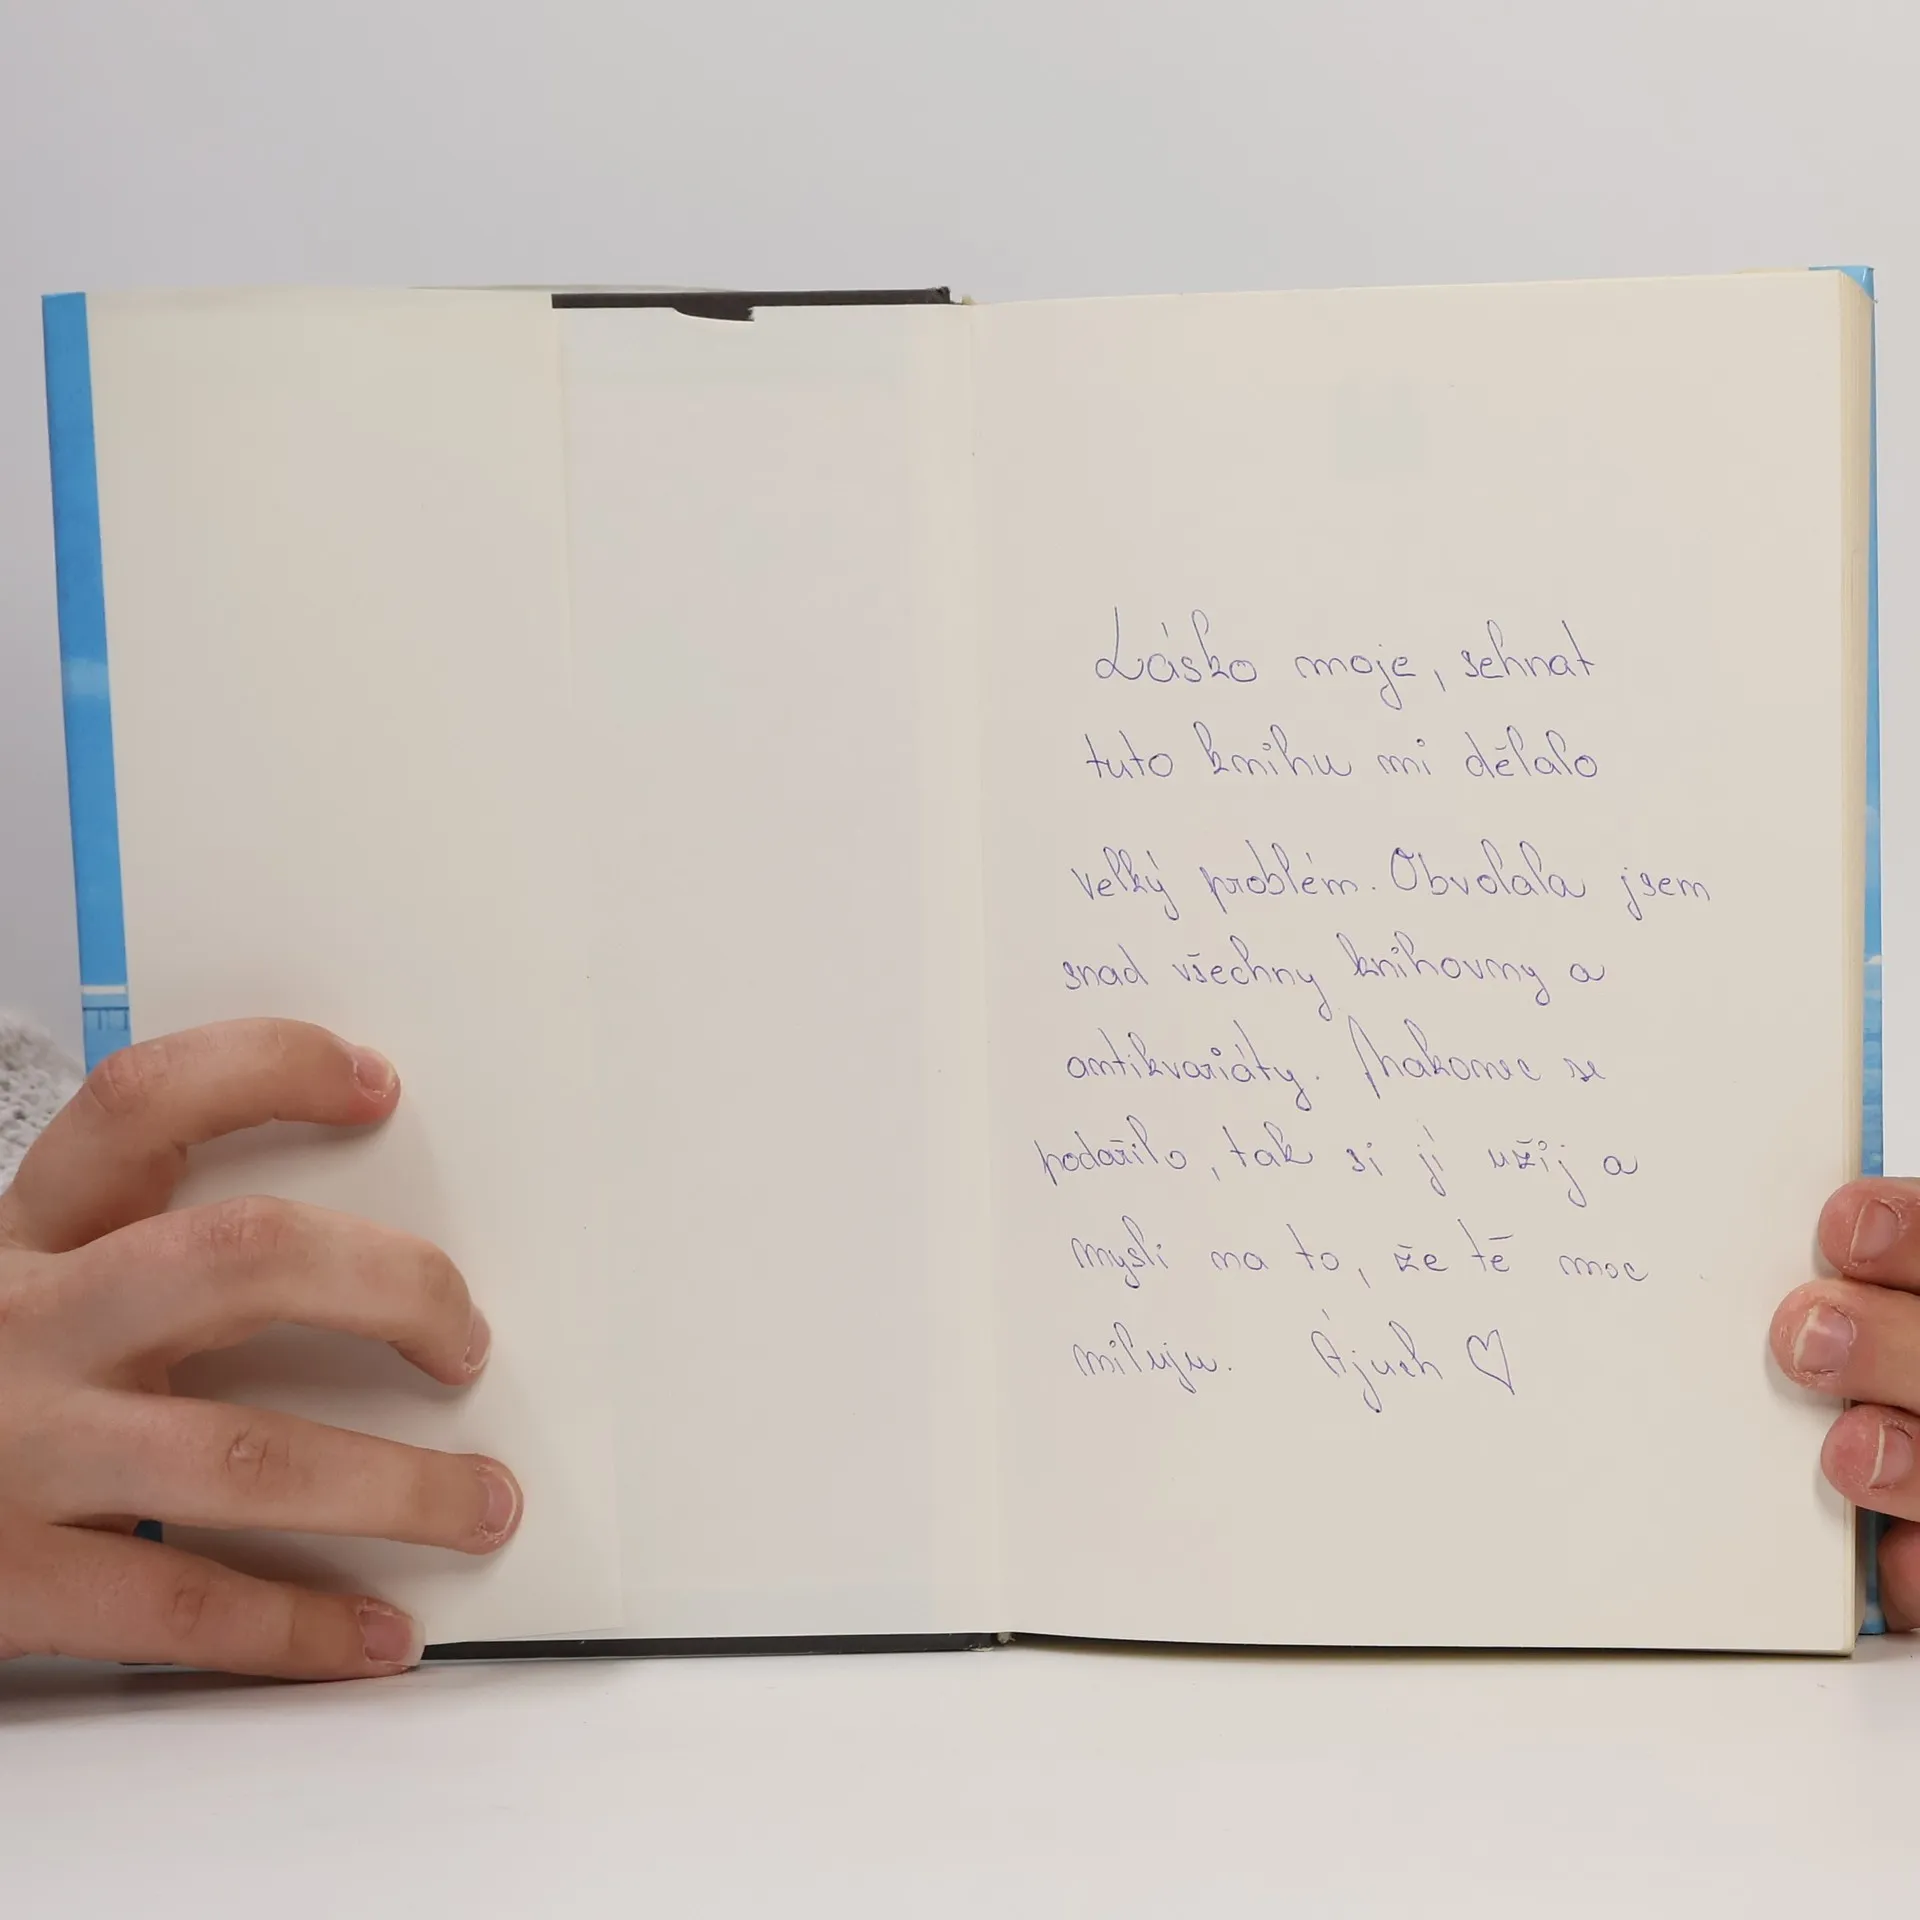 Lásko moje, sehnat
tuto knihu mi dělalo
velký problém. Obvolala jsem
snad všechny knihovny a
antikvariáty. Nakonec se
podařilo, tak si ji užij a
mysli na to, že tě moc
miluju. Ájuch ♡